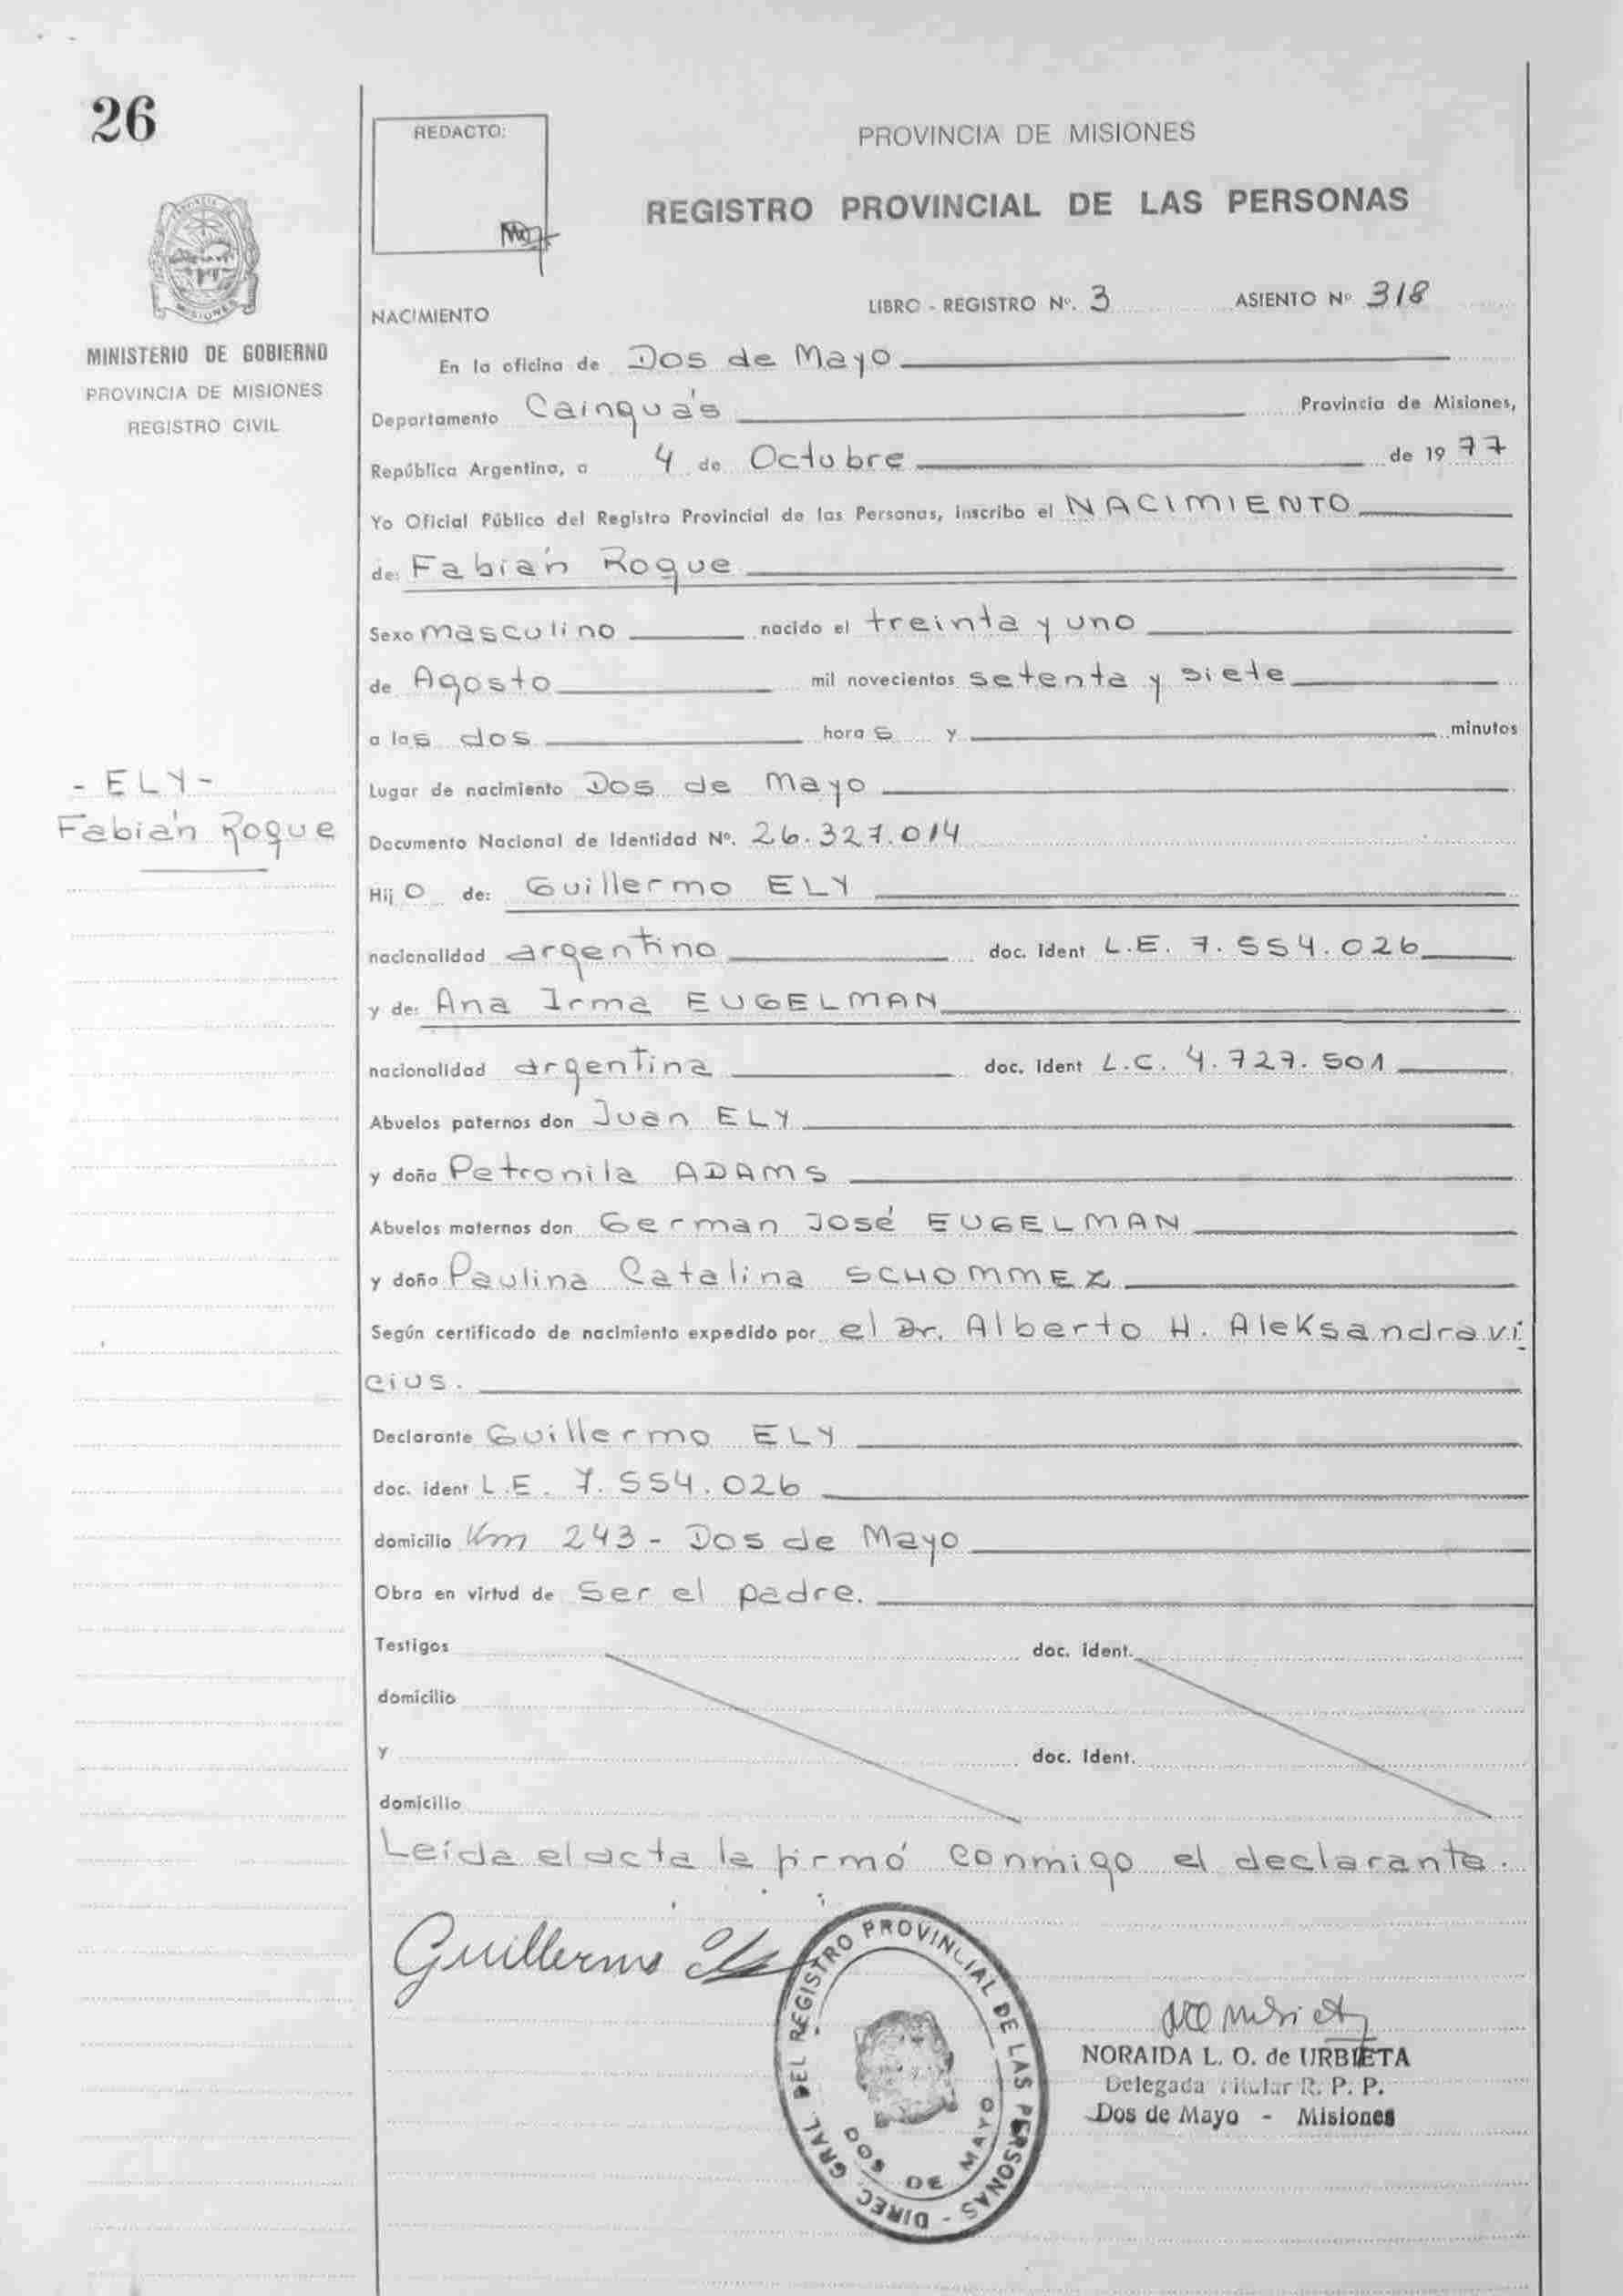 26
REDACTO:
PROVINCIA DE MISIONES
REGISTRO PROVINCIAL DE LAS PERSONAS
MISIONES
MINISTERIO DE GOBIERNO
PROVINCIA DE MISIONES
REGISTRO CIVIL
NACIMIENTO LIBRO - REGISTRO Nº. 3 ASIENTO Nº 318
En la oficina de Dos de Mayo
Departamento Cainguás Provincia de Misiones,
República Argentina, a 4 de Octubre de 1977
Yo Oficial Público del Registro Provincial de las Personas, inscribo el NACIMIENTO
de: Fabián Roque
Sexo masculino nacido el treinta y uno
de Agosto mil novecientos setenta y siete
a las dos horas y minutos
- ELY -
Fabián Roque
Lugar de nacimiento Dos de Mayo
Documento Nacional de Identidad Nº. 26.327.014
Hijo de: Guillermo ELY
nacionalidad argentino doc. ident L.E. 7.554.026
y de: Ana Irma EUGELMAN
nacionalidad argentina doc. ident L.C. 4.727.501
Abuelos paternos don Juan ELY
y doña Petronila ADAMS
Abuelos maternos don German José EUGELMAN
y doña Paulina Catalina SCHOMMEZ
Según certificado de nacimiento expedido por el Dr. Alberto H. Aleksandravi
cius.
Declarante Guillermo ELY
doc. ident L.E. 7.554.026
domicilio Km 243 - Dos de Mayo
Obra en virtud de ser el padre.
Testigos doc. ident.
domicilio
y doc. ident.
domicilio
Leída el acta la firmó conmigo el declarante.
Guillermo Ely
DIREC. GRAL. DEL REGISTRO PROVINCIAL DE LAS PERSONAS -
DOS DE MAYO
NORAIDA L. O. de URBIETA
Delegada Titular R. P. P.
Dos de Mayo - Misiones